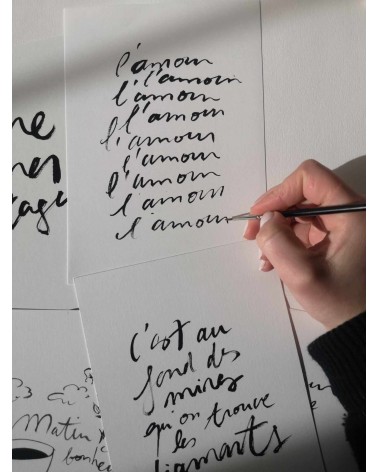 l'amour
l'amour
l'amour
l'amour
l'amour
l'amour
l'amour
l'amour
l'amour
C'est au
fond des
mines
qu'on trouve
les
diamants
Matin